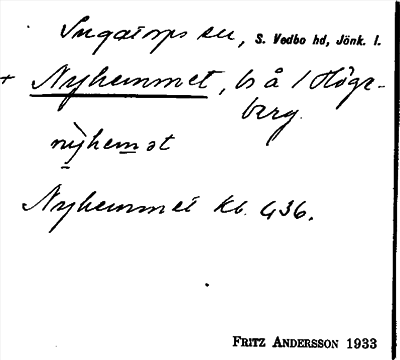 Ingatorps sn, S. Vedbo hd, Jönk. l.
+ Nyhemmet, ls å 1 Höge-
berg.
nỳhemət
Nyhemmet Kb. 436.
FRITZ ANDERSSON 1933